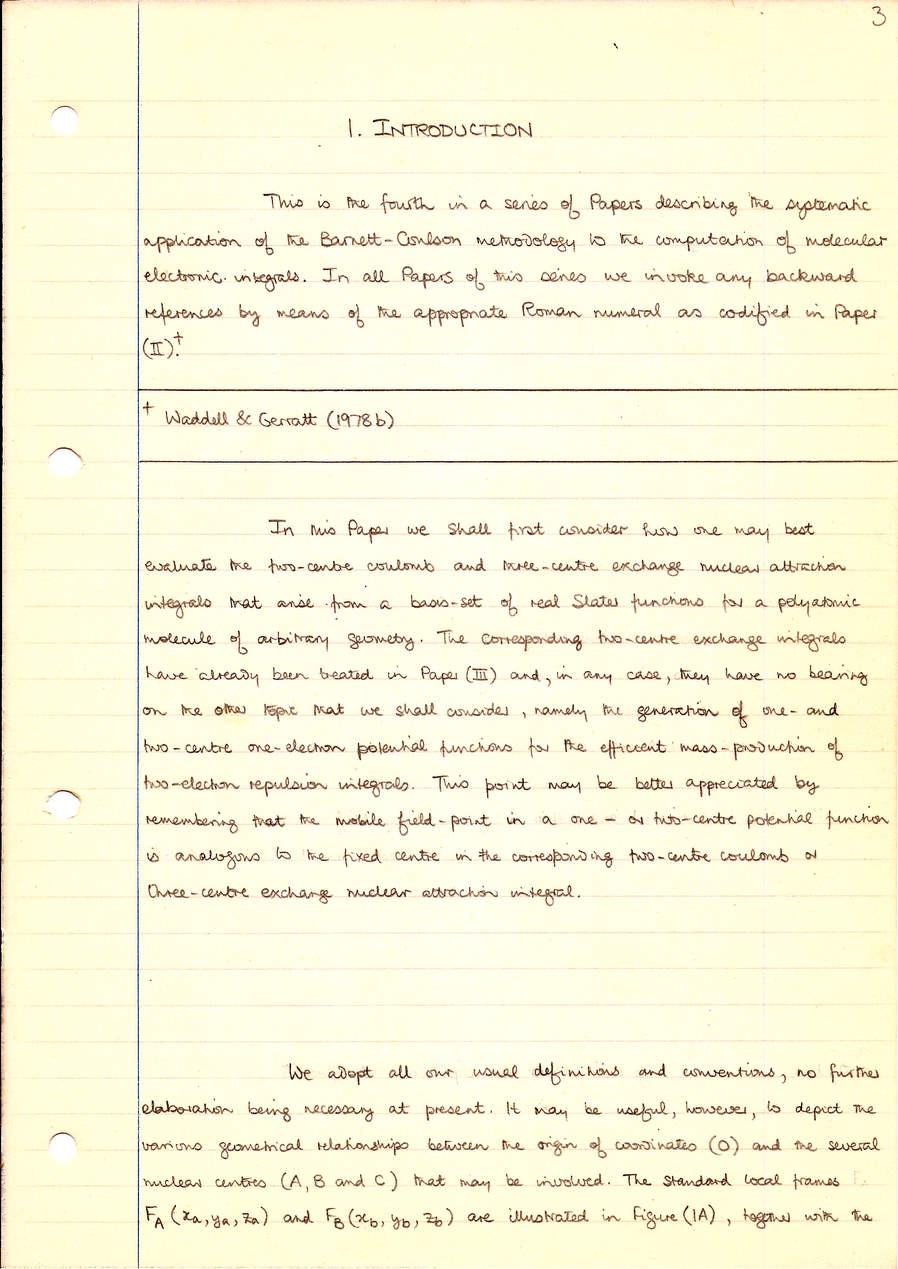 3
1. INTRODUCTION
This is the fourth in a series of Papers describing the systematic
application of the Barnett-Coulson methodology to the computation of molecular
electronic integrals. In all Papers of this series we invoke any backward
references by means of the appropriate Roman numeral as codified in Paper
(II).†
† Waddell & Gerratt (1978b)
In this Paper we shall first consider how one may best
evaluate the two-centre coulomb and three-centre exchange nuclear attraction
integrals that arise from a basis-set of real Slater functions for a polyatomic
molecule of arbitrary geometry. The corresponding two-centre exchange integrals
have already been treated in Paper (III) and, in any case, they have no bearing
on the other topic that we shall consider, namely the generation of one- and
two-centre one-electron potential functions for the efficient mass-production of
two-electron repulsion integrals. This point may be better appreciated by
remembering that the mobile field-point in a one- or two-centre potential function
is analogous to the fixed centre in the corresponding two-centre coulomb or
three-centre exchange nuclear attraction integral.
We adopt all our usual definitions and conventions, no further
elaboration being necessary at present. It may be useful, however, to depict the
various geometrical relationships between the origin of coordinates (O) and the several
nuclear centres (A, B and C) that may be involved. The standard local frames
F_A (x_a, y_a, z_a) and F_B (x_b, y_b, z_b) are illustrated in Figure (1A), together with the